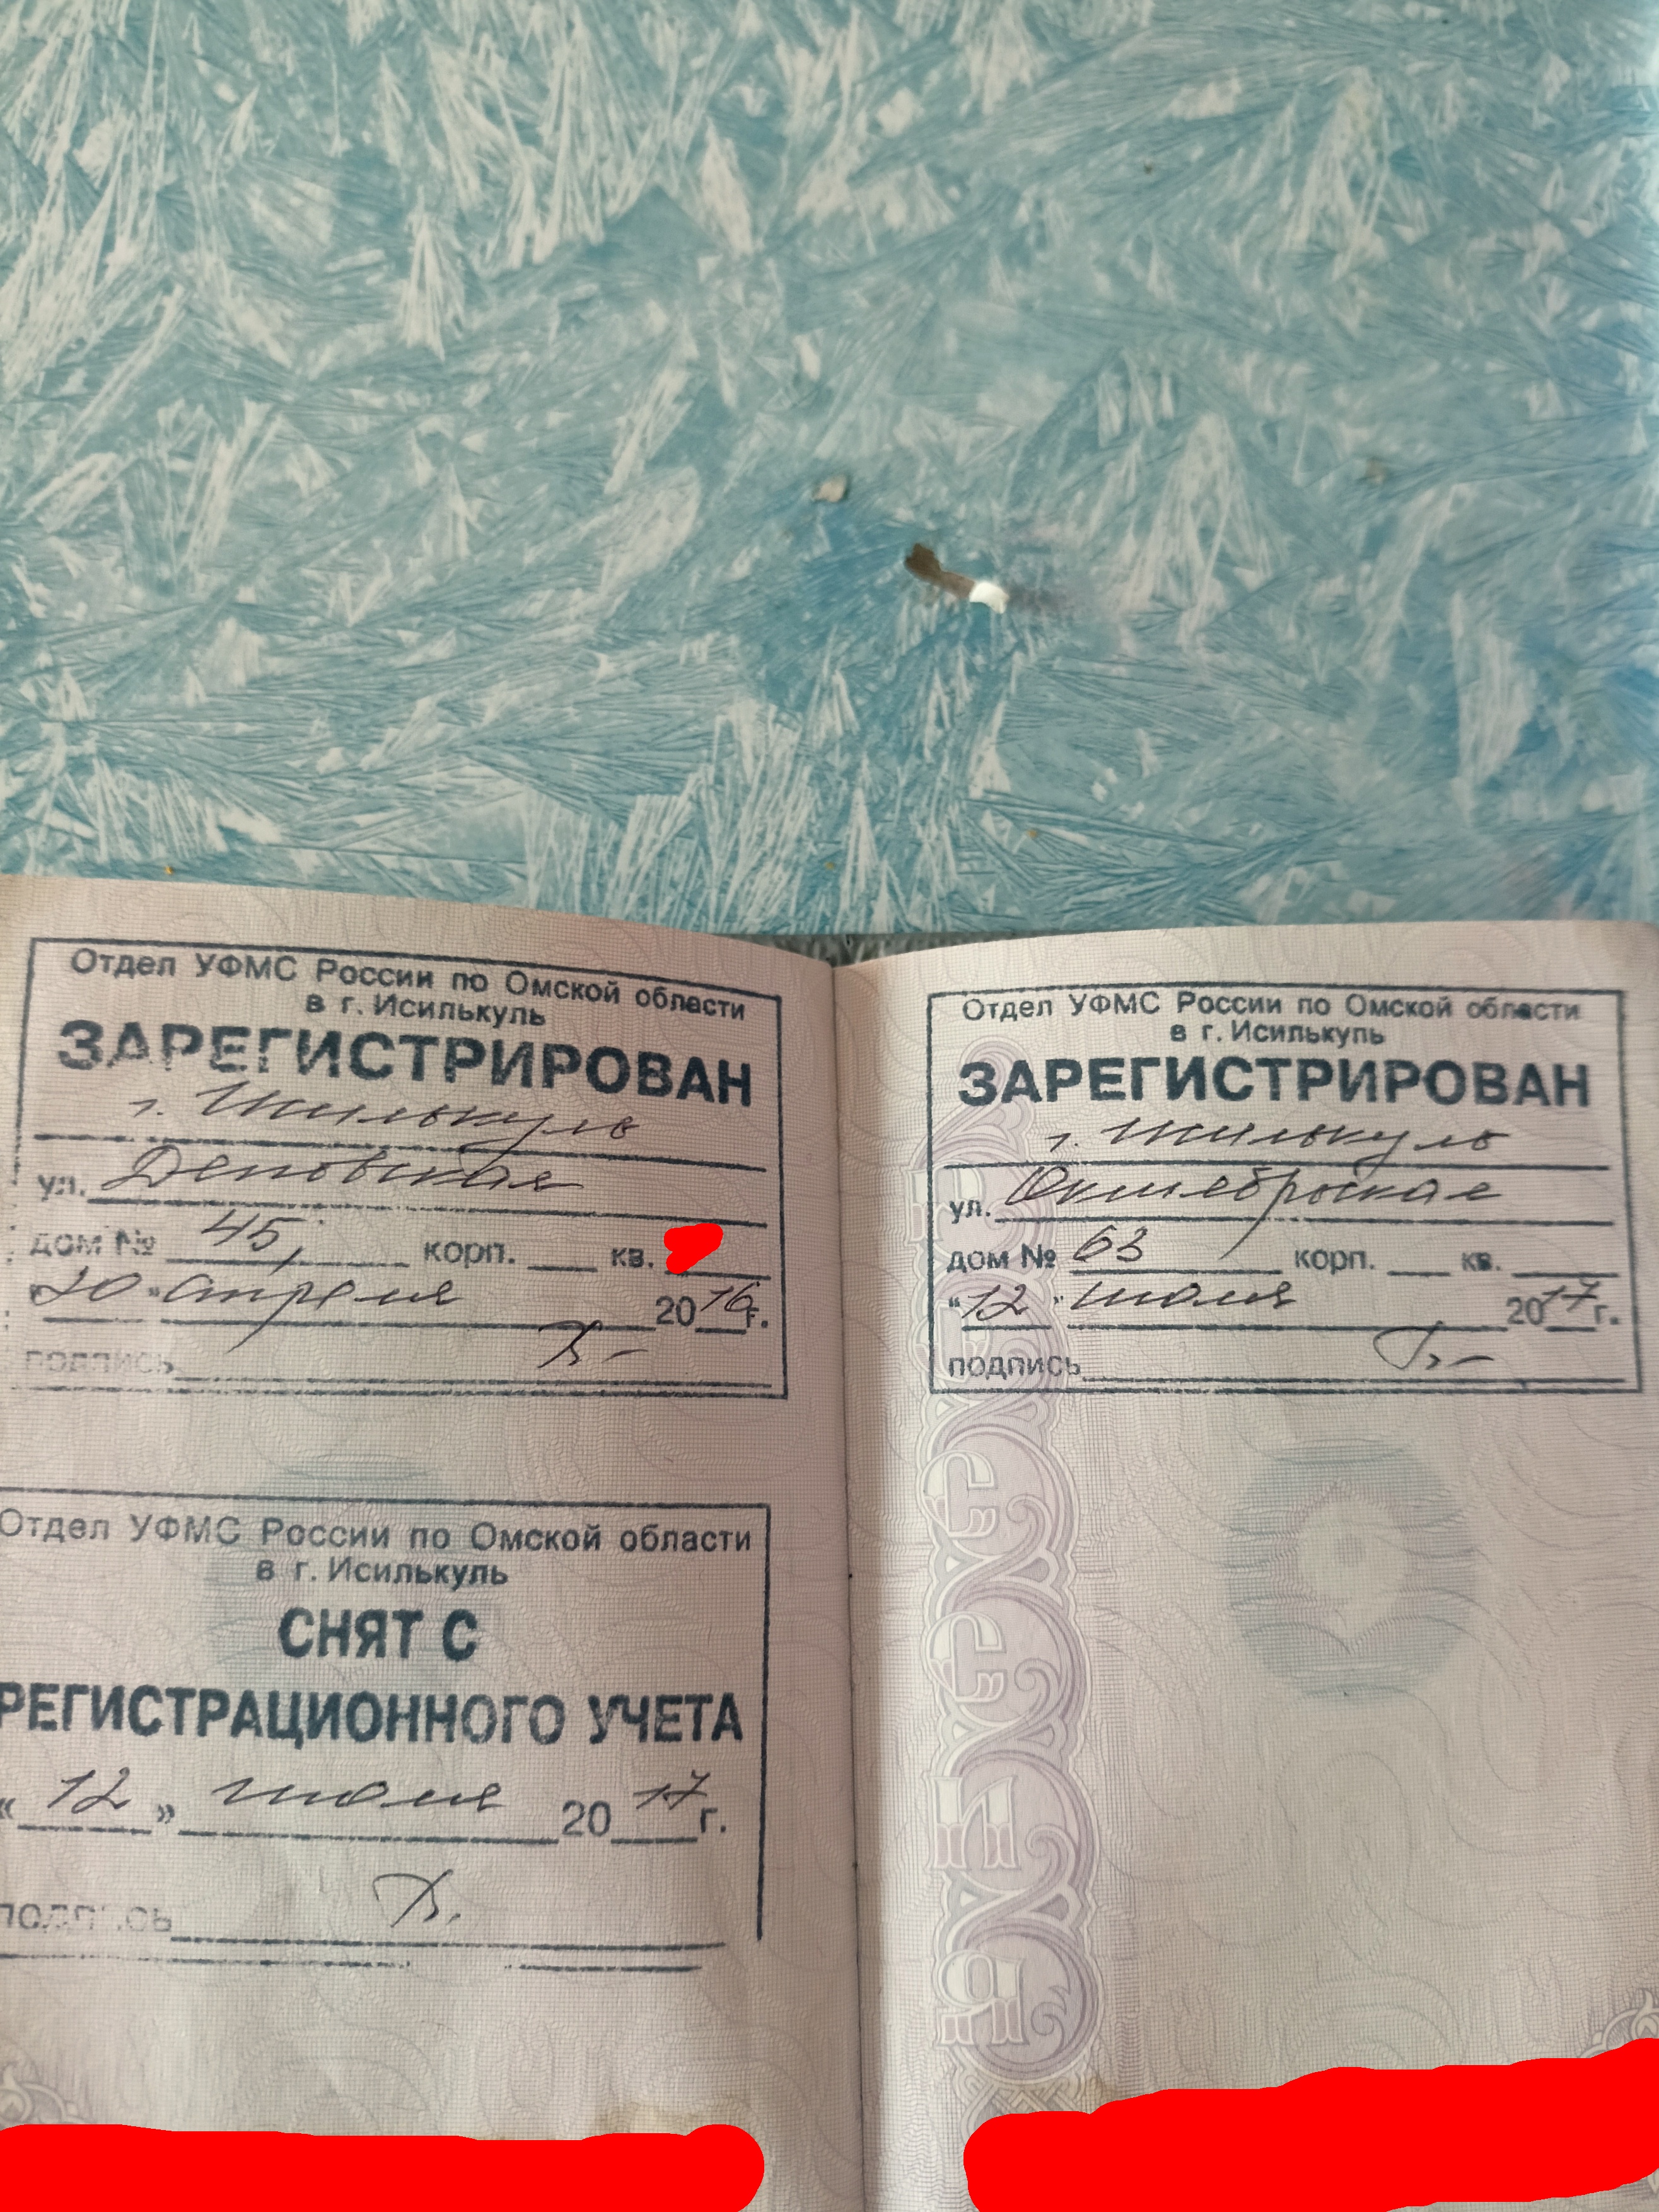 Отдел УФМС России по Омской области
в г. Исилькуль
ЗАРЕГИСТРИРОВАН
г. Исилькуль
ул. Деповская
дом № 45, корп. кв.
"20" апреля 2016г.
подпись
Отдел УФМС России по Омской области
в г. Исилькуль
СНЯТ С
РЕГИСТРАЦИОННОГО УЧЕТА
« 12 » июля 2017г.
подпись
Отдел УФМС России по Омской области
в г. Исилькуль
ЗАРЕГИСТРИРОВАН
г. Исилькуль
ул. Октябрьская
дом № 63 корп. кв.
"12" июля 2017г.
подпись